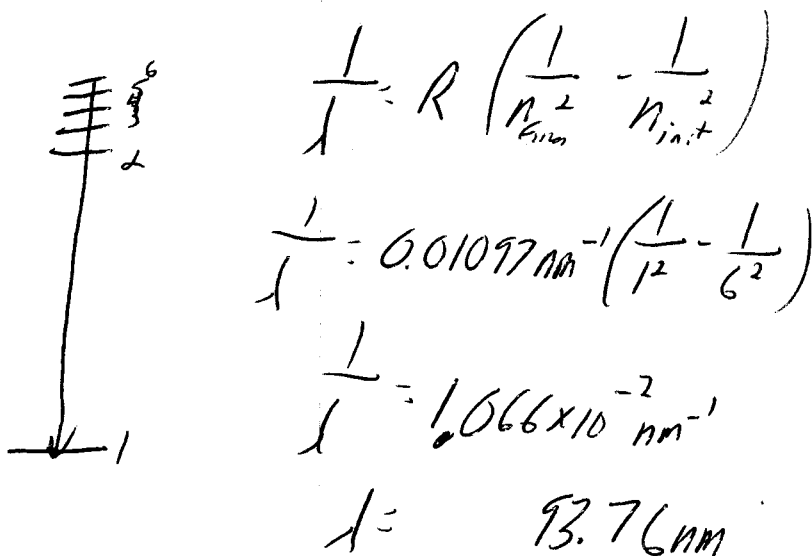 6
2
1
1/λ = R (1/n_final² - 1/n_init²)
1/λ = 0.01097 nm⁻¹ (1/1² - 1/6²)
1/λ = 1.066 x 10⁻² nm⁻¹
λ = 93.76 nm